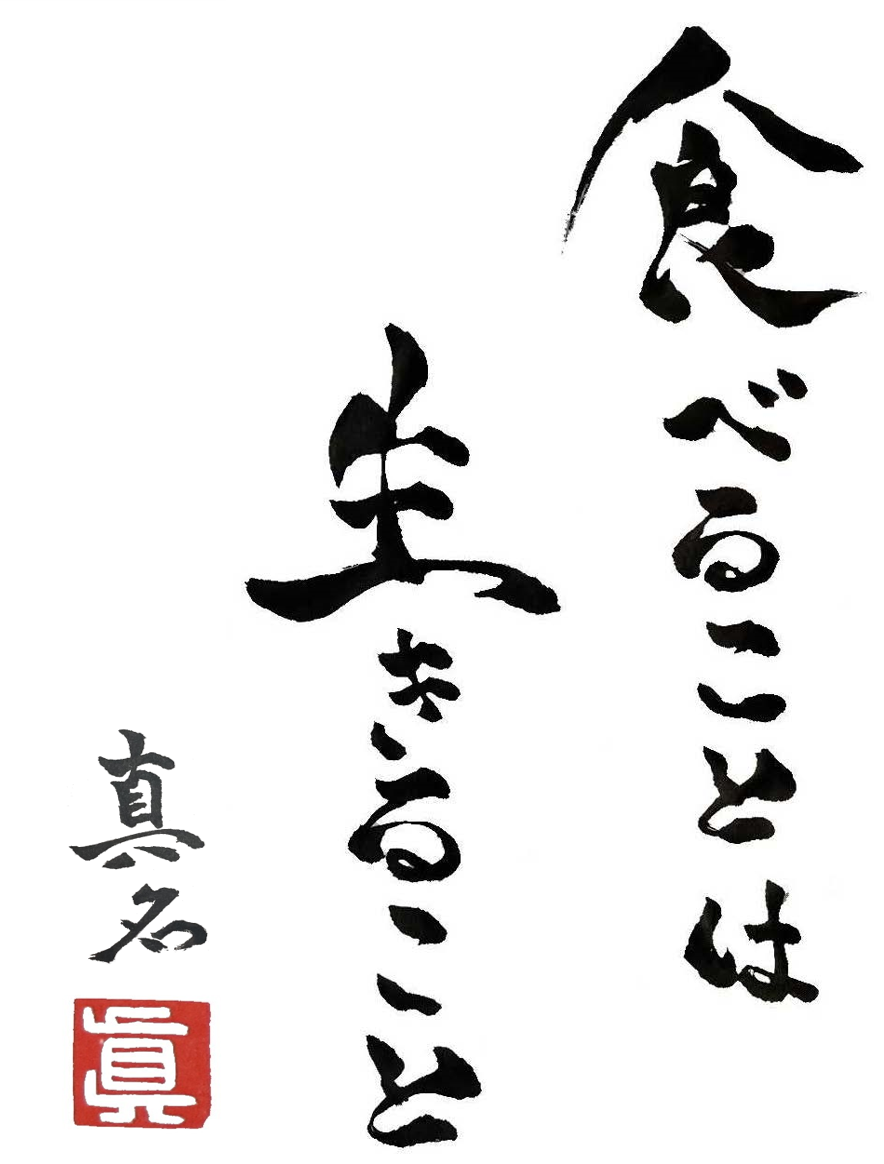 食べることは
生きること
真名
眞